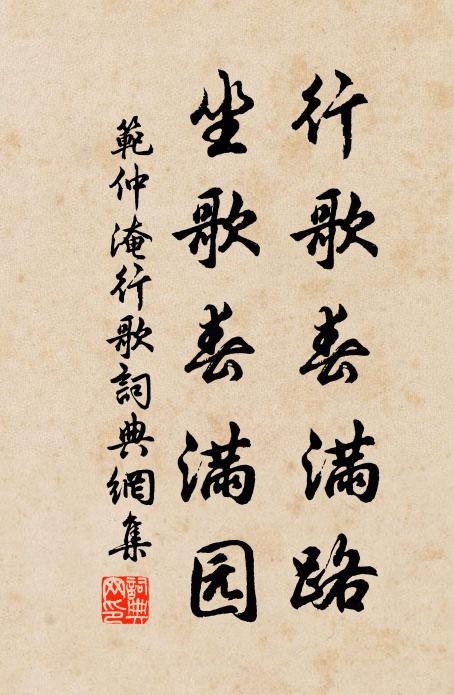 行歌春满路
坐歌春满园
範仲淹行歌詞典網集
詞典
网印